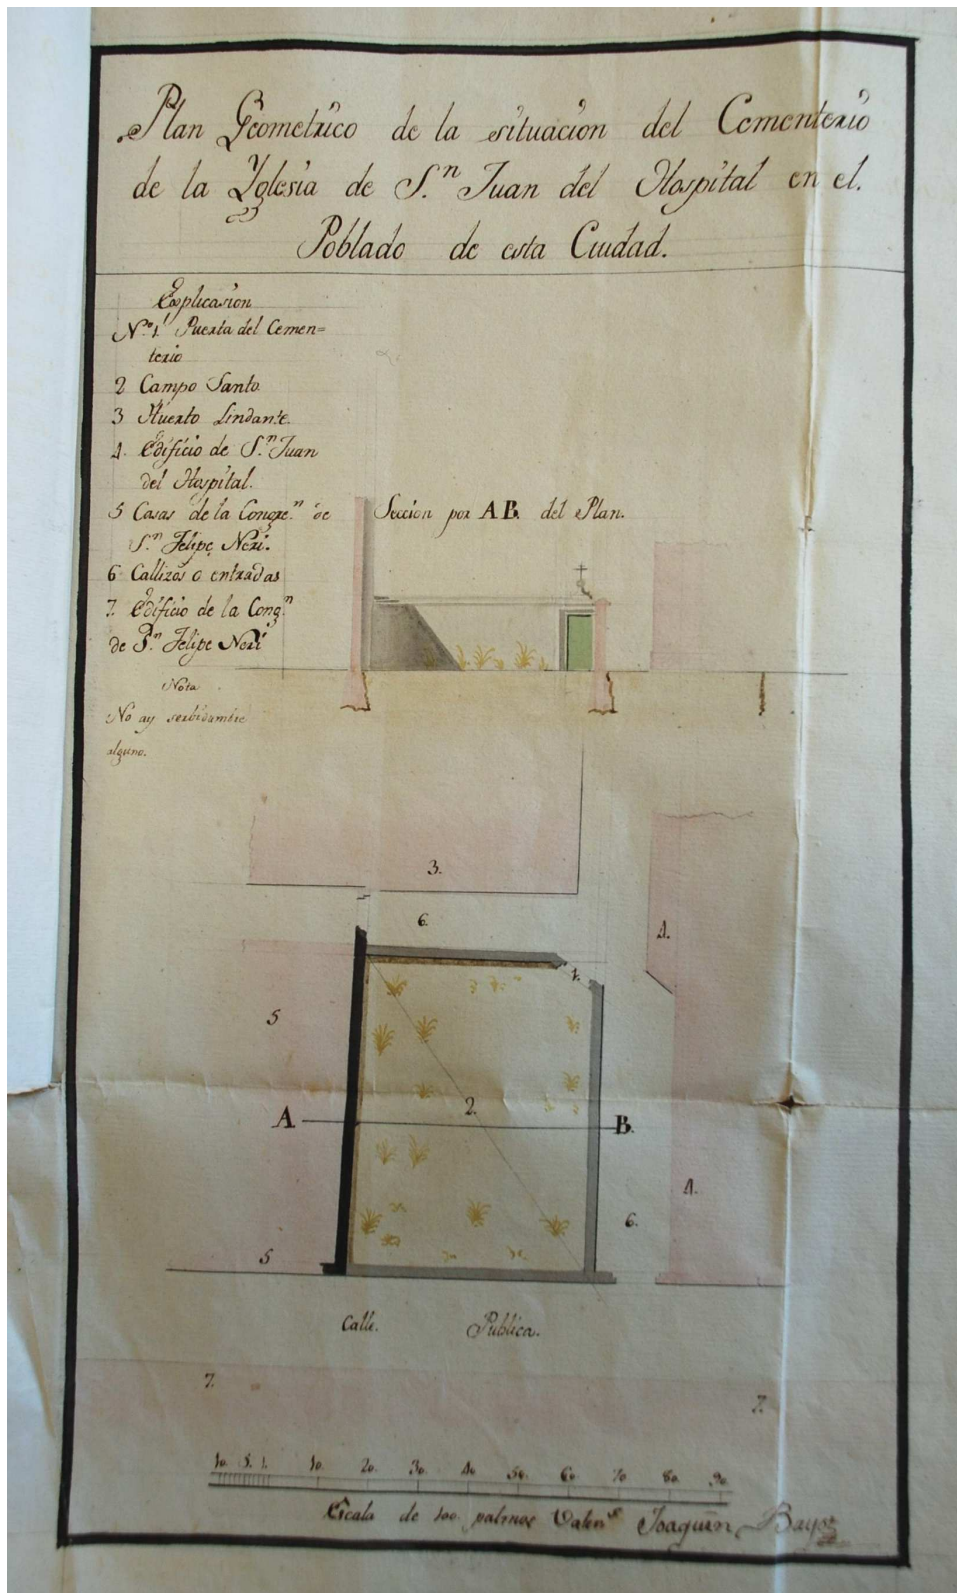 Plan Geometrico de la situacion del Cementerio
de la Yglesia de S.n Juan del Hospital en el.
Poblado de esta Ciudad.
Esplicasion
N.o 1. Puerta del Cemen=
terio
2 Campo Santo
3 Huerto Lindante.
4. Edificio de S.n Juan
del Hospital.
5 Casas de la Congre.n de
S.n Felipe Neri.
6 Callizos o entradas
7. Edificio de la Cong.n
de S.n Felipe Neri
Nota
No ay serbidumbre
alguno.
Seccion por A B. del Plan.
3.
6.
4.
1.
5
2.
A
B.
4.
6.
5
Calle. Publica.
7.
7.
10. 5. 1. 10. 20. 30. 40. 50. 60. 70. 80. 90.
Escala de 100. palmos Valen.s Joaquin